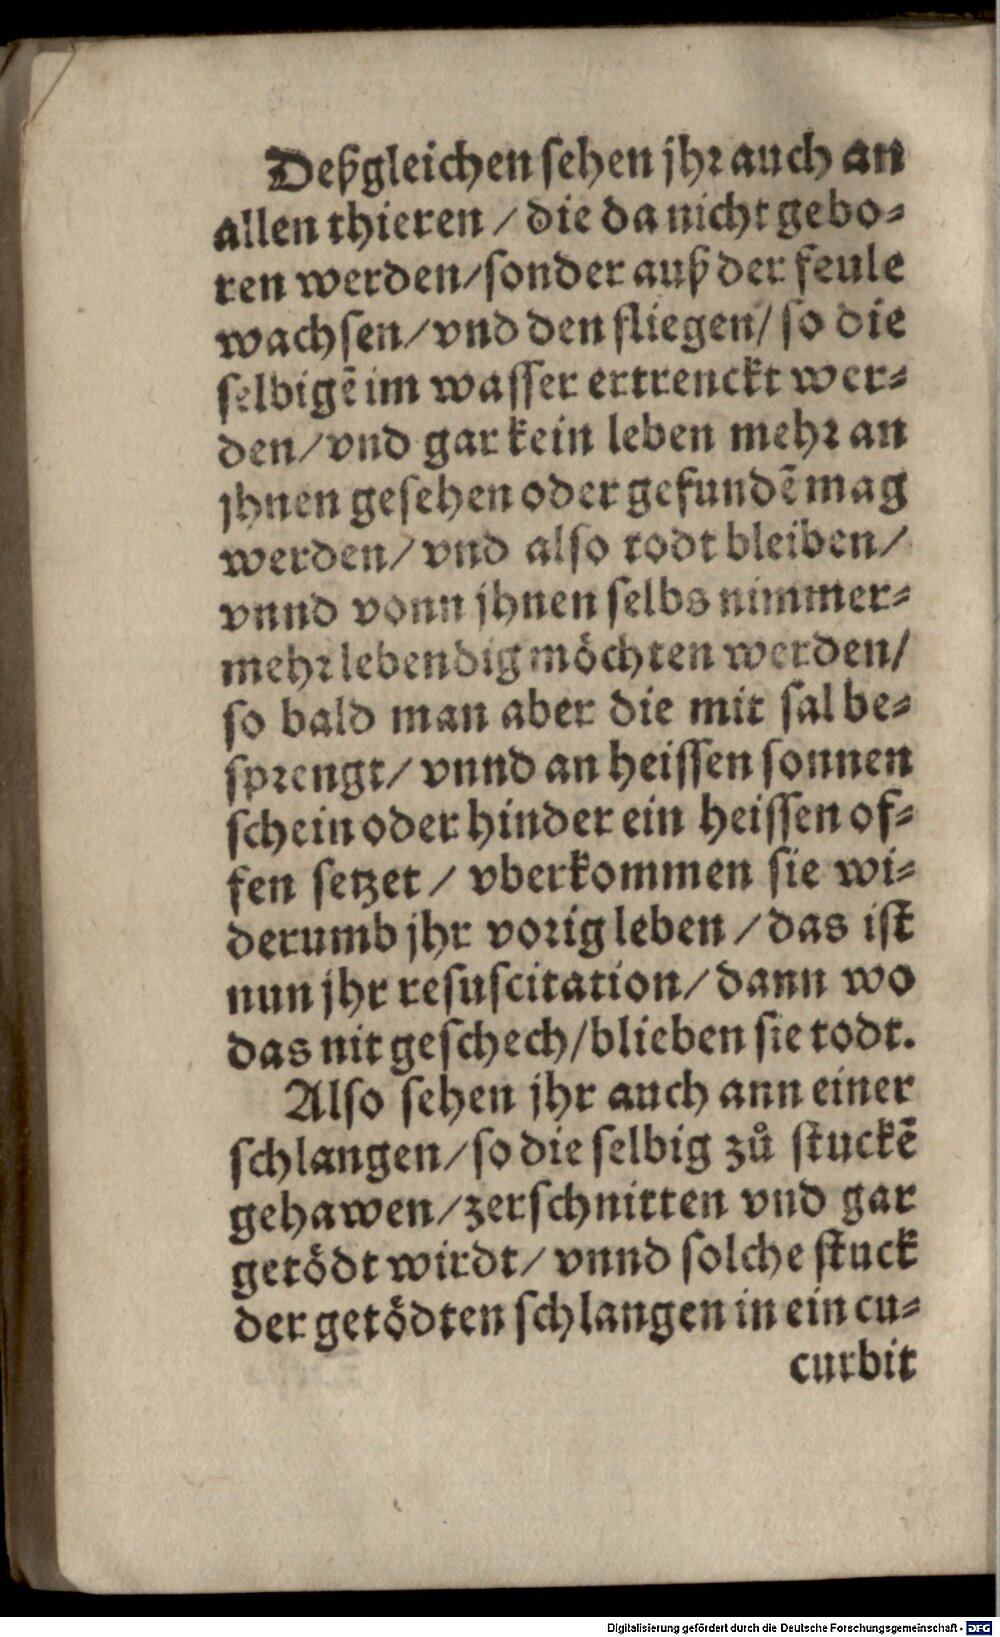 Deßgleichen sehen jhr auch an
allen thieren / die da nicht gebo⸗
ren werden/sonder auß der feule
wachsen/vnd den fliegen/ so die
selbigẽ im wasser ertrenckt wer⸗
den/vnd gar kein leben mehr an
jhnen gesehen oder gefundẽ mag
werden/vnd also todt bleiben/
vnnd vonn jhnen selbs nimmer⸗
mehr lebendig möchten werden/
so bald man aber die mit sal be⸗
sprengt/vnnd an heissen sonnen
schein oder hinder ein heissen of⸗
fen setzet / vberkommen sie wi⸗
derumb jhr vorig leben / das ist
nun jhr resuscitation/dann wo
das nit geschech/blieben sie todt.
Also sehen jhr auch ann einer
schlangen/so die selbig zů stuckẽ
gehawen/zerschnitten vnd gar
getödt wirdt/ vnnd solche stuck
der getödten schlangen in ein cu⸗
curbit
Digitalisierung gefördert durch die Deutsche Forschungsgemeinschaft - DFG